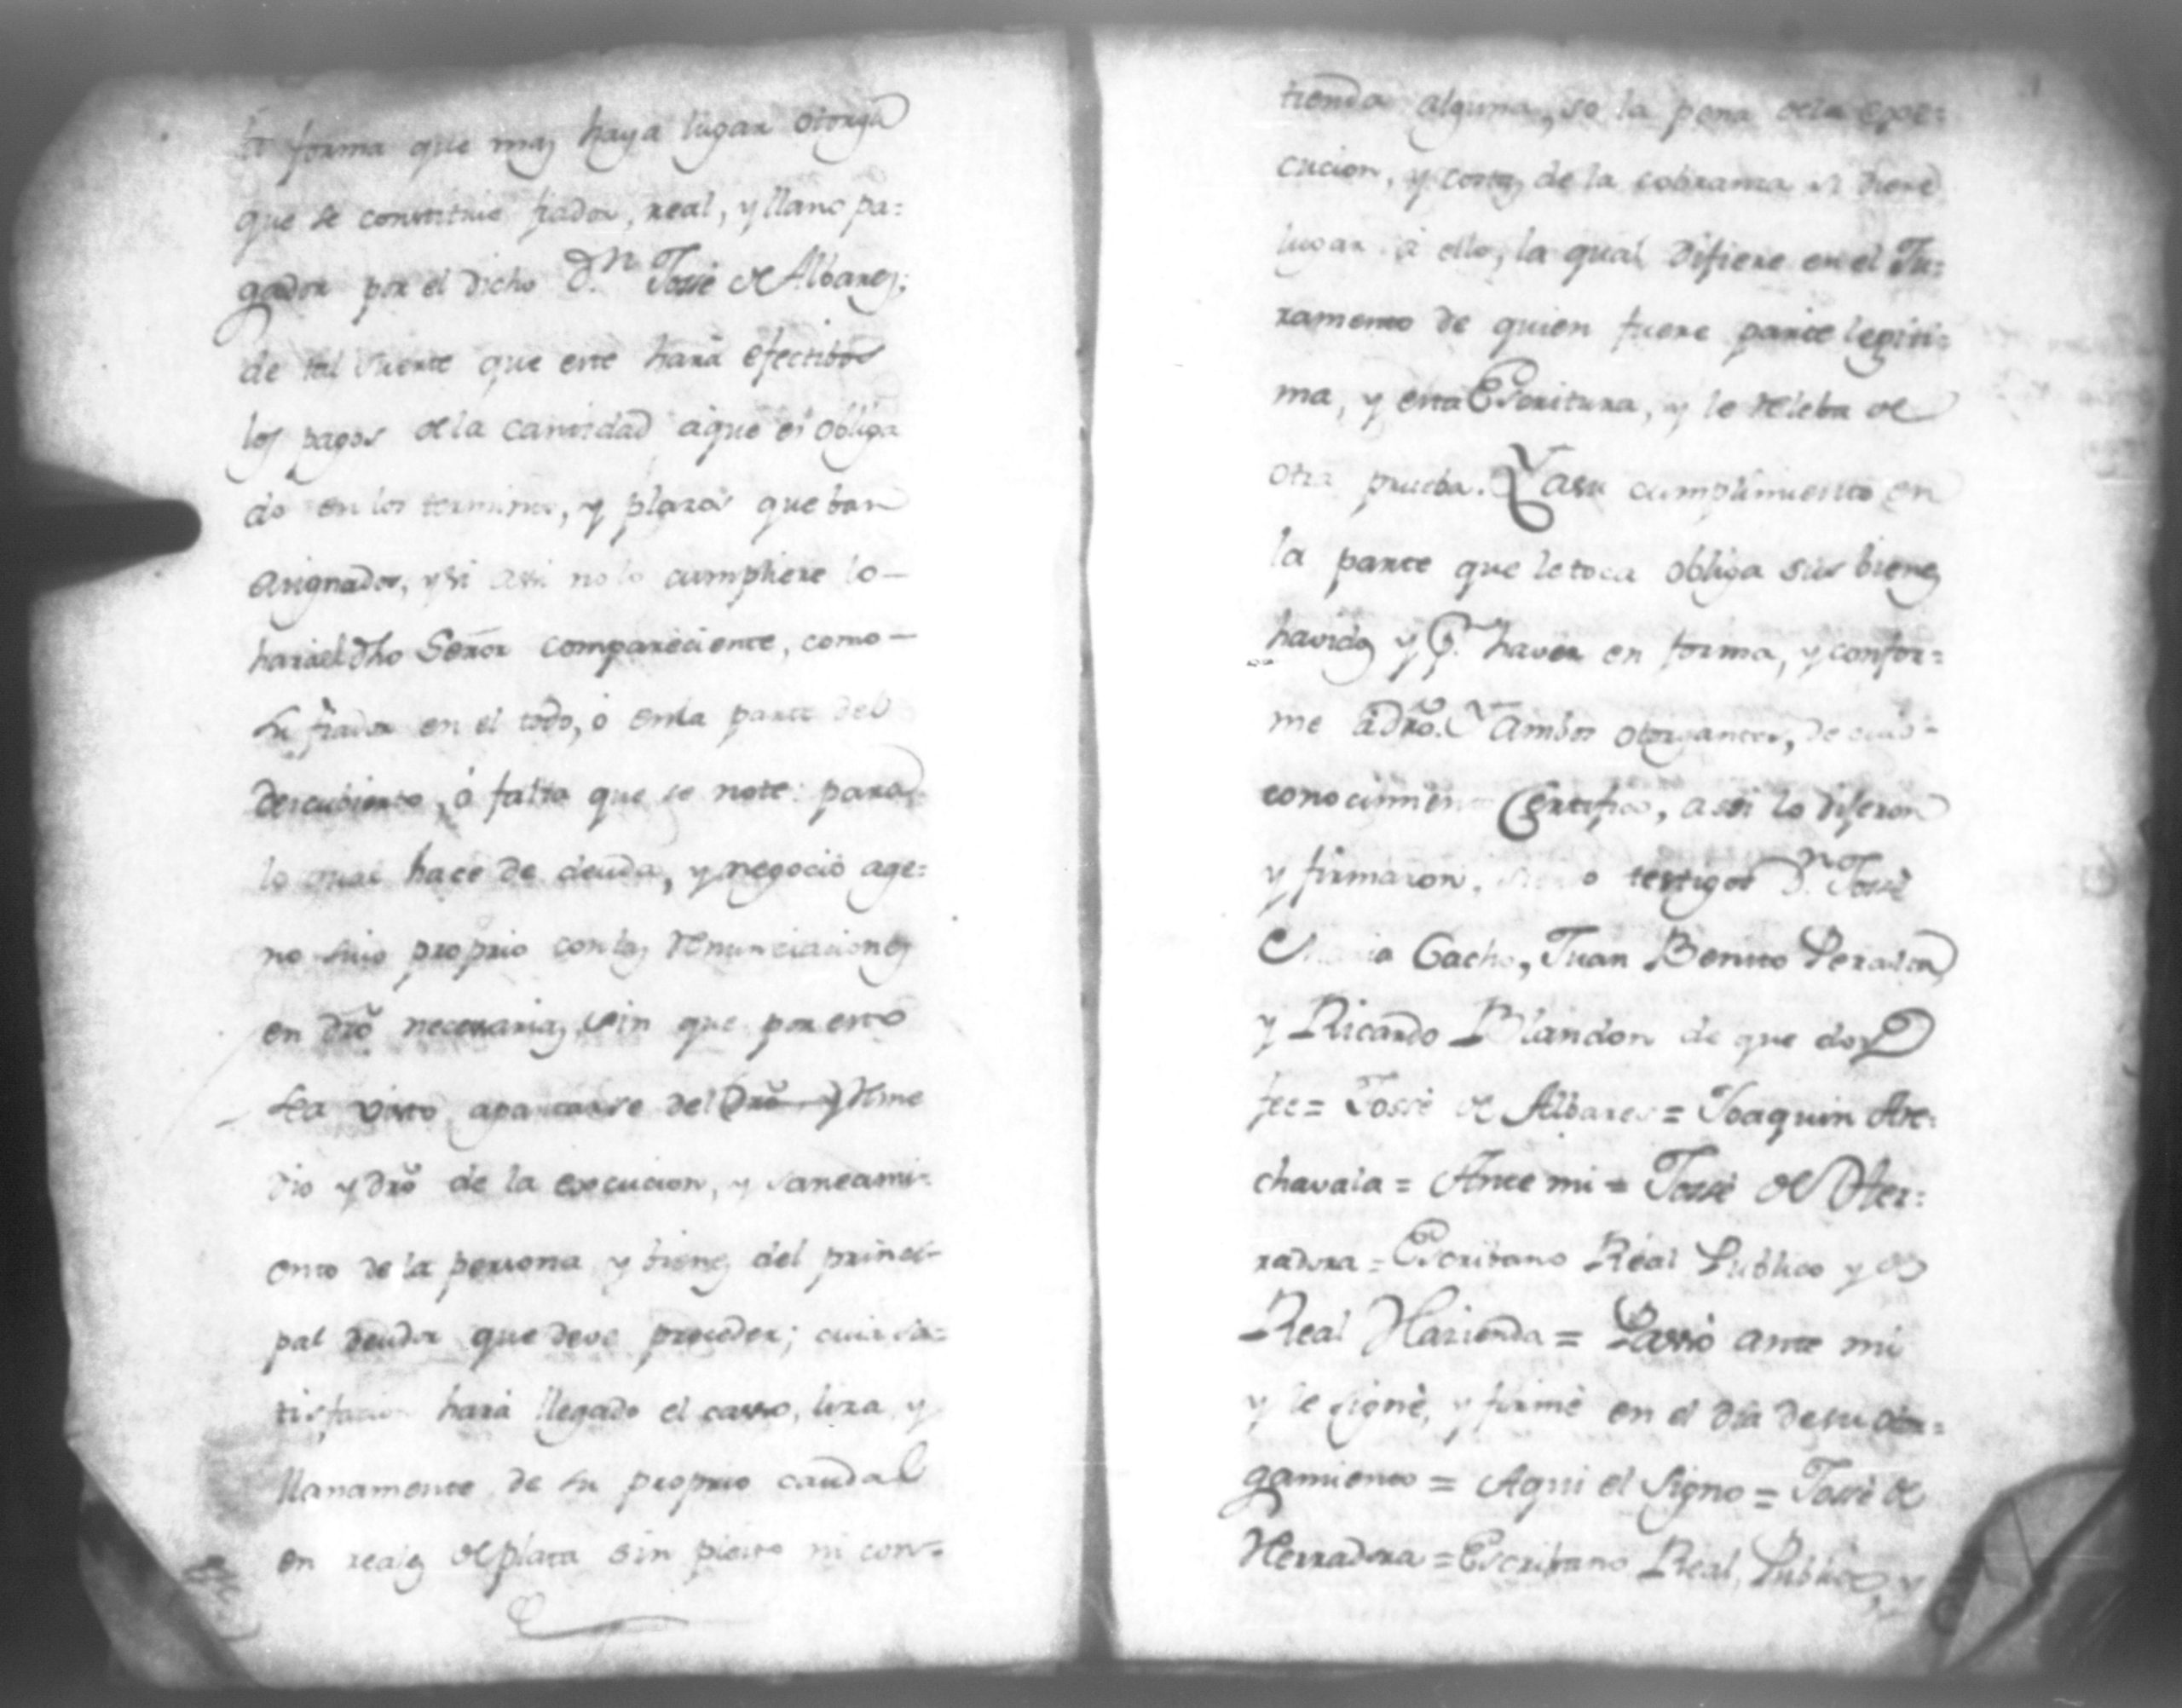 la forma que mas haya lugar otorga
que se constituie fiador, real, y llano pa=
gador por el dicho D.n Josè de Albares;
de tal suerte que este harà efectibos
los pagos de la cantidad aque es obliga
do en los terminos, y plazos que ban
asignados, y si assi no lo cumpliere lo—
harà el dho Señor compareciente, como—
su fiador en el todo, ò en la parte del
descubierto, ò falta que se note: para
lo qual hace de deuda, y negocio age=
no suio proprio con las renunciaciones
en dro necesarias, sin que por esto
sea visto apartarse del dro y reme
dio y dro de la execucion, y saneami=
ento de la persona y bienes del princi=
pal deudor que deve preceder; cuia sa=
tisfacion harà llegado el casso, lisa, y
llanamente de su proprio caudal
en reales de plata sin pleito ni con=
tienda alguna, so la pena de la exe=
cucion, y costas de la cobranza si diere
lugar à ello, la qual difiere en el Ju=
ramento de quien fuere parte legiti=
ma, y esta Escritura, y le releba de
otra prueba. Y asu cumplimiento en
la parte que le toca obliga sus bienes
havidos y p.r haver en forma, y confor=
me à dro. Y ambos otorgantes, de cuio
conocimiento Certifico, assi lo dijeron
y firmaron, siendo testigos D.n Josè
Maria Cacho, Juan Benito Peralta
y Ricardo Blandon de que doy
fee = Josè de Albares = Joaquin Are=
chavala = Ante mi = Josè de Her=
radora = Escribano Real Publico y de
Real Hazienda = Passò ante mi
y le signè, y firmè en el dia de su otor=
gamiento = Aqui el Signo = Josè de
Herradora = Escribano Real, Publico, y